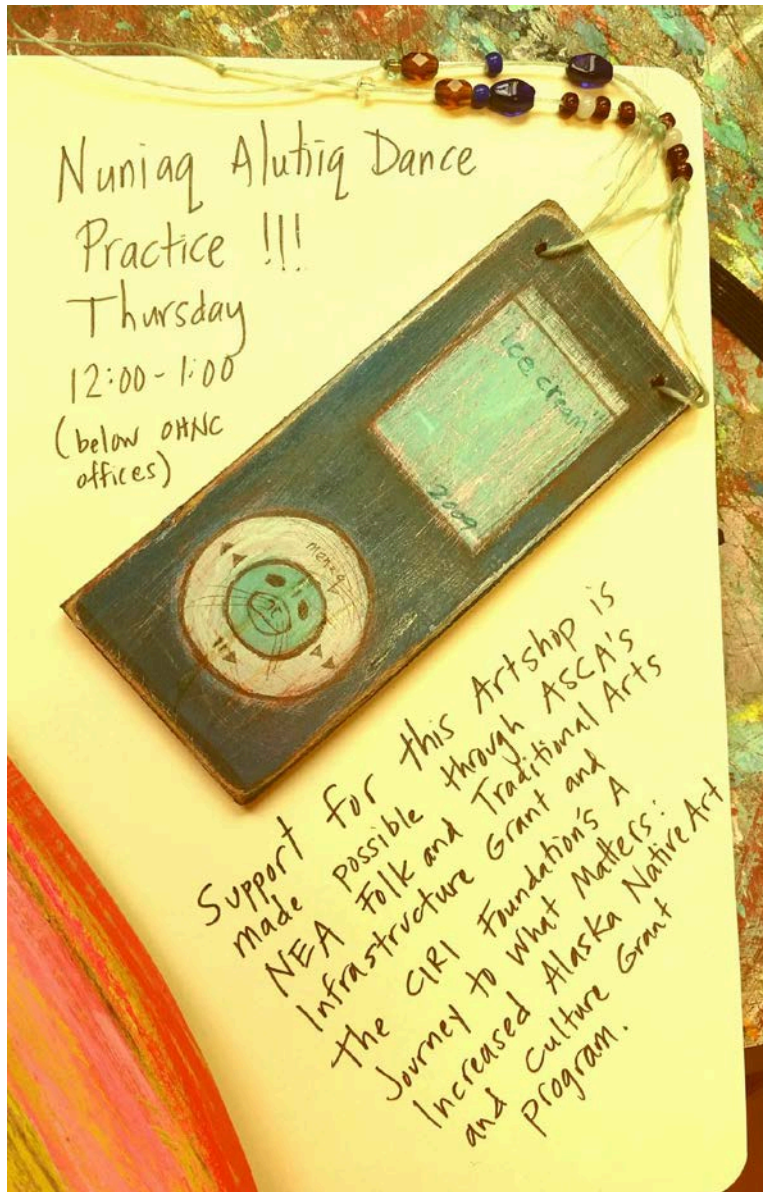 Nuniaq Alutiiq Dance
Practice !!!
Thursday
12:00-1:00
(below OHNC
offices)
"ice cream"
2009
menu
Support for this Artshop is
made possible through ASCA's
NEA Folk and Traditional Arts
Infrastructure Grant and
the CIRI Foundation's A
Journey to What Matters:
Increased Alaska Native Art
and Culture Grant
program.